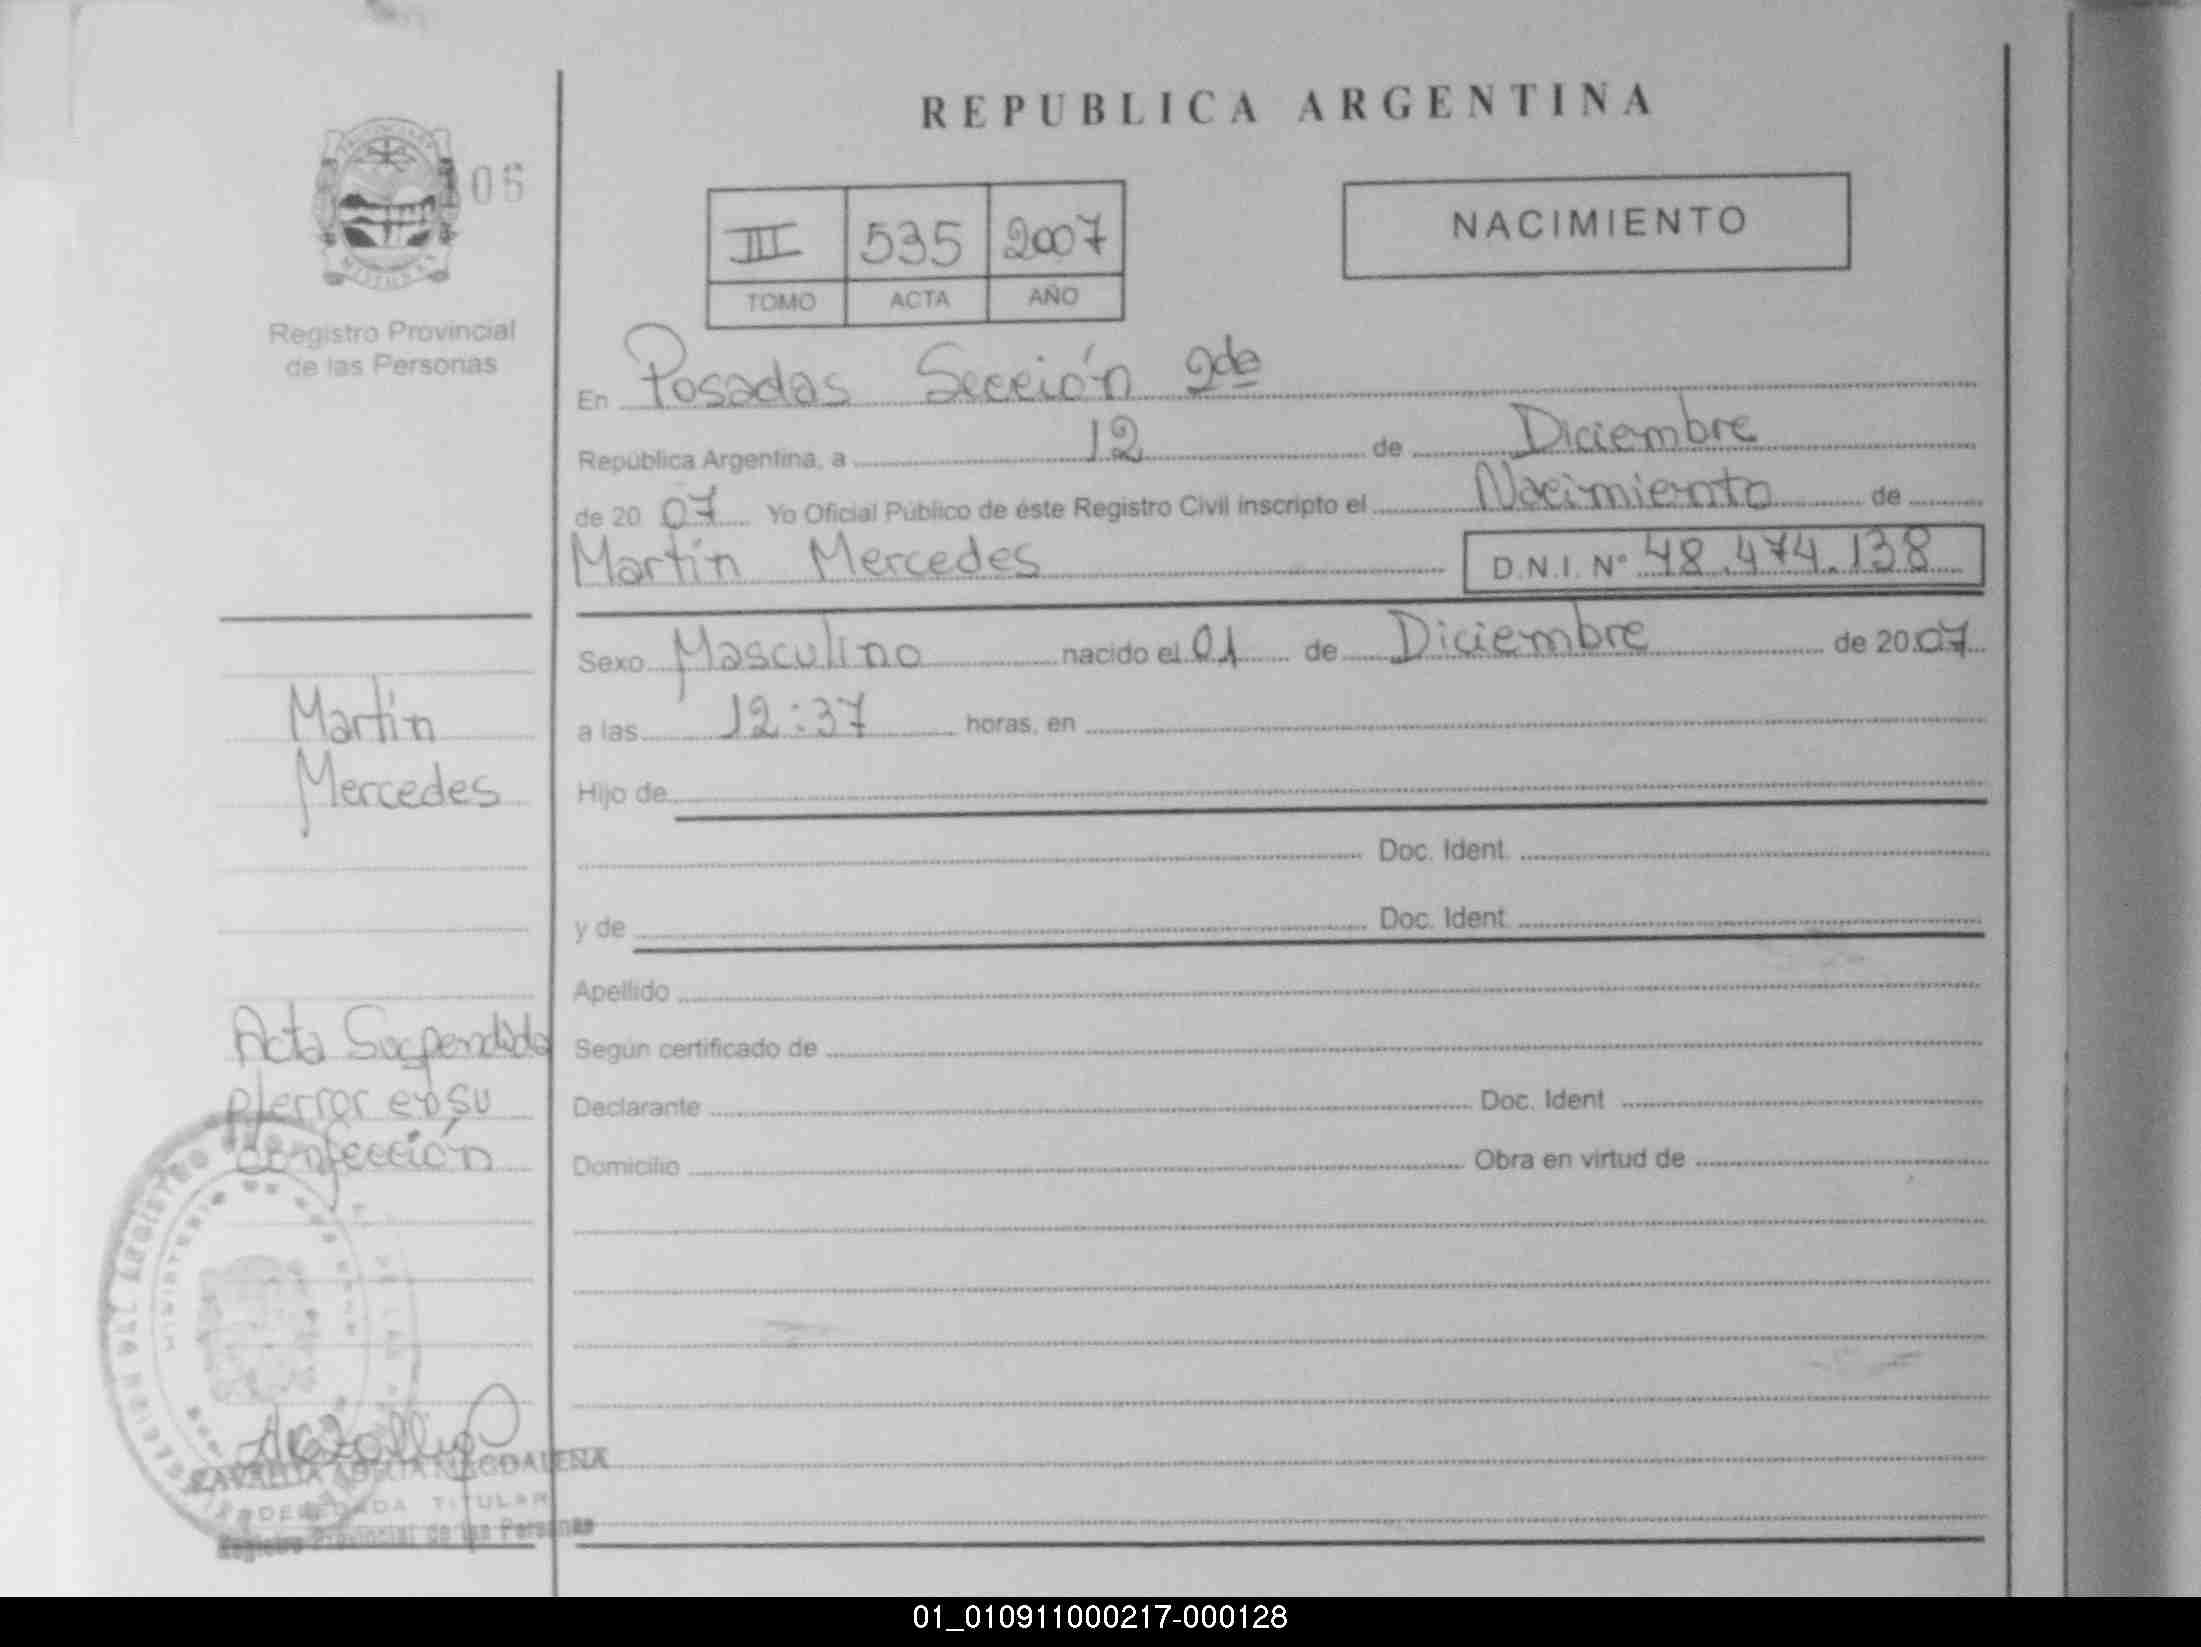 REPUBLICA ARGENTINA
MISIONES
06
Registro Provincial
de las Personas
III 535 2007
TOMO ACTA AÑO
NACIMIENTO
En Posadas Sección 2da
República Argentina, a 12 de Diciembre
de 20 07 Yo Oficial Público de éste Registro Civil inscripto el Nacimiento de
Martín Mercedes D.N.I. Nº 48.474.138
Sexo Masculino nacido el 01 de Diciembre de 20 07
a las 12:37 horas, en
Hijo de
Doc. Ident.
y de Doc. Ident.
Apellido
Según certificado de
Declarante Doc. Ident
Domicilio Obra en virtud de
Martín
Mercedes
Acta Suspendida
p/error en su
confección
MAGDALENA
TITULAR
Registro Provincial de las Personas
01_010911000217-000128